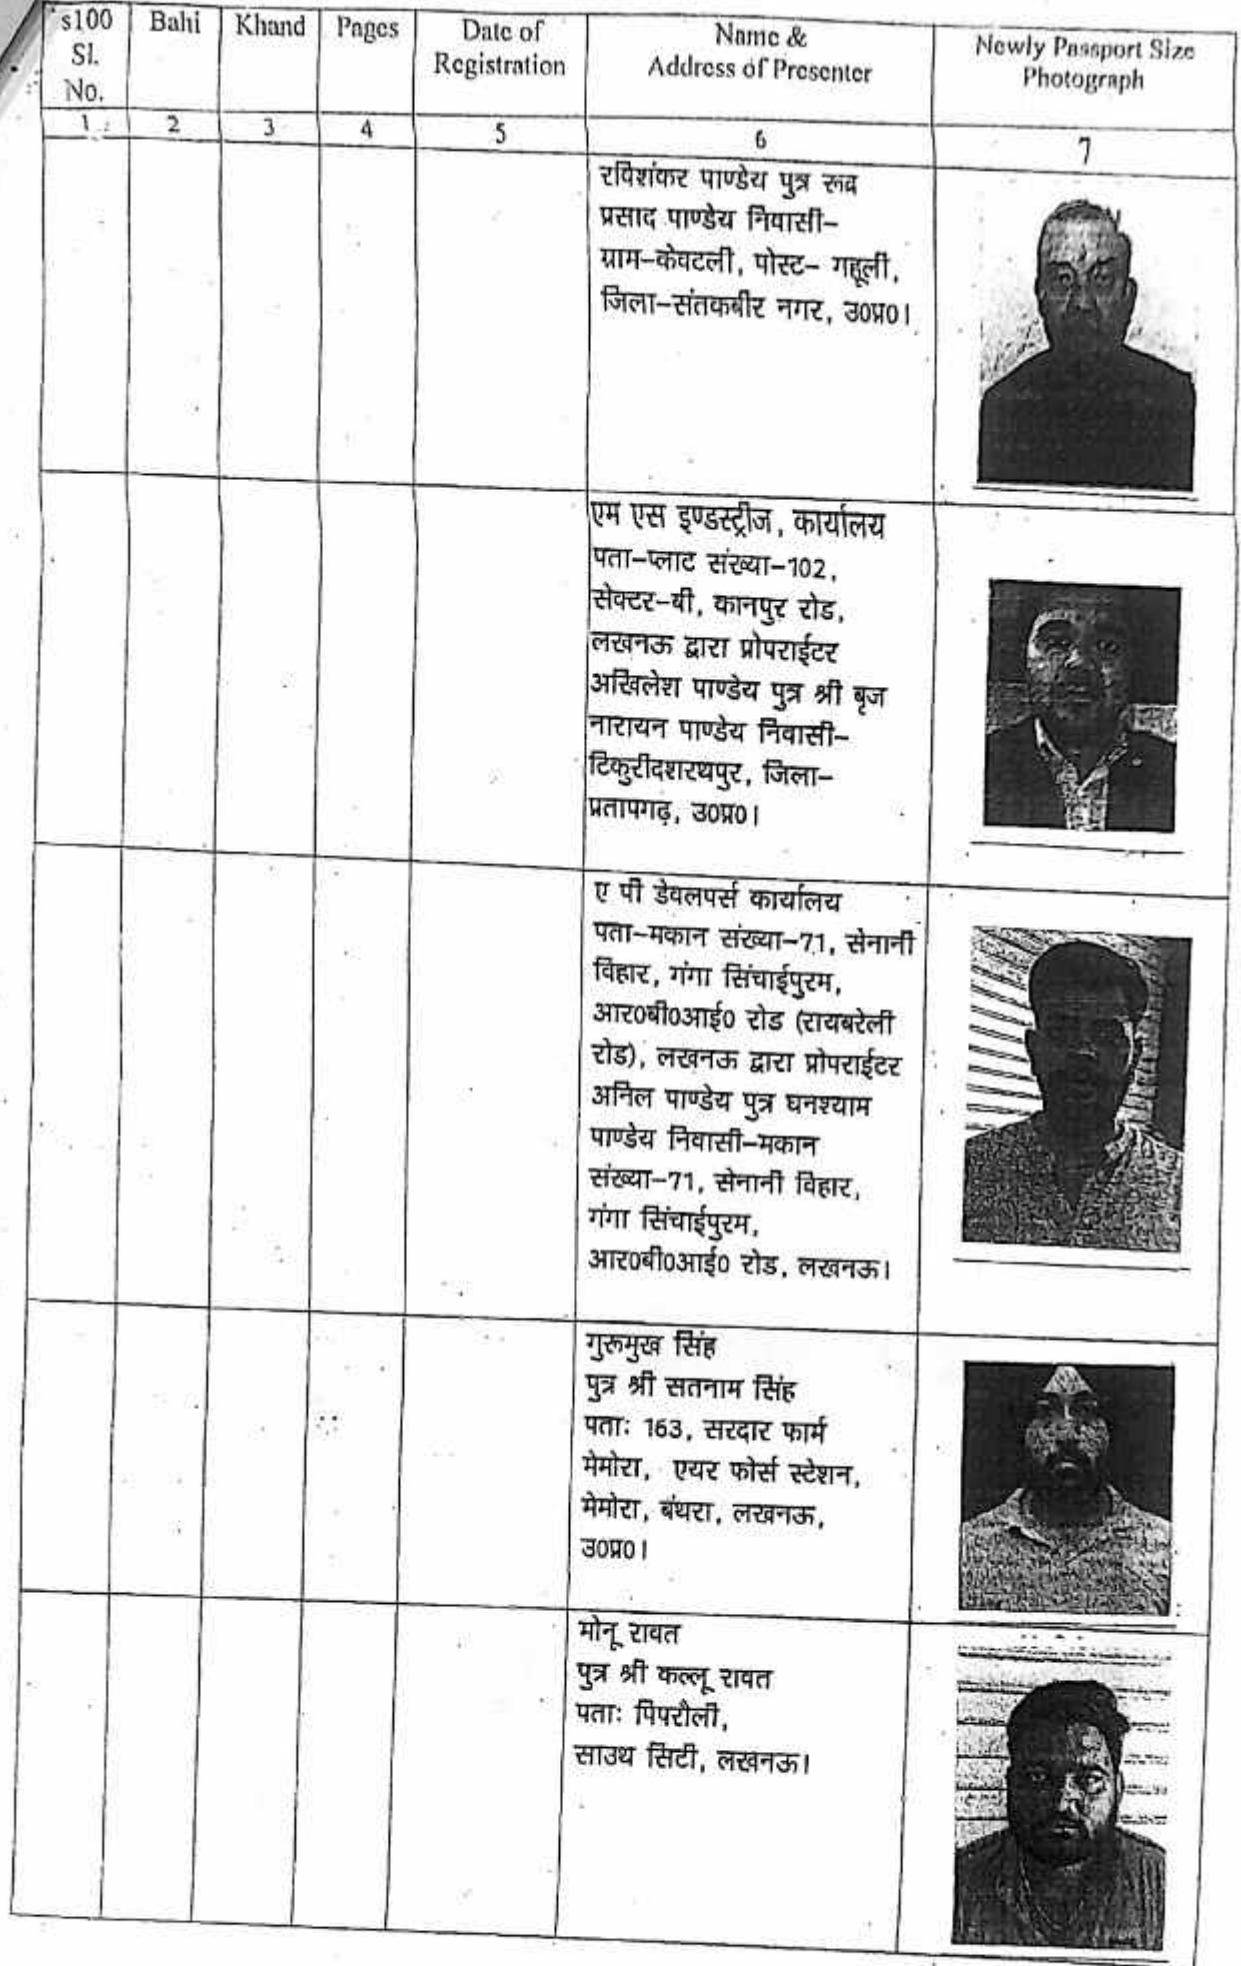 s100 Sl. No. | Bahi | Khand | Pages | Date of Registration | Name & Address of Presenter | Newly Passport Size Photograph
1 | 2 | 3 | 4 | 5 | 6 | 7
रविशंकर पाण्डेय पुत्र रूद्र
प्रसाद पाण्डेय निवासी-
ग्राम-केवटली, पोस्ट- गहूली,
जिला-संतकबीर नगर, उ०प्र०।
एम एस इण्डस्ट्रीज, कार्यालय
पता-प्लाट संख्या-102,
सेक्टर-बी, कानपुर रोड,
लखनऊ द्वारा प्रोपराईटर
अखिलेश पाण्डेय पुत्र श्री बृज
नारायन पाण्डेय निवासी-
टिकुरीदशरथपुर, जिला-
प्रतापगढ़, उ०प्र०।
ए पी डेवलपर्स कार्यालय
पता-मकान संख्या-71, सेनानी
विहार, गंगा सिंचाईपुरम,
आर०बी०आई० रोड (रायबरेली
रोड), लखनऊ द्वारा प्रोपराईटर
अनिल पाण्डेय पुत्र घनश्याम
पाण्डेय निवासी-मकान
संख्या-71, सेनानी विहार,
गंगा सिंचाईपुरम,
आर०बी०आई० रोड, लखनऊ।
गुरूमुख सिंह
पुत्र श्री सतनाम सिंह
पताः 163, सरदार फार्म
मेमोरा, एयर फोर्स स्टेशन,
मेमोरा, बंथरा, लखनऊ,
उ०प्र०।
मोनू रावत
पुत्र श्री कल्लू रावत
पताः पिपरौली,
साउथ सिटी, लखनऊ।